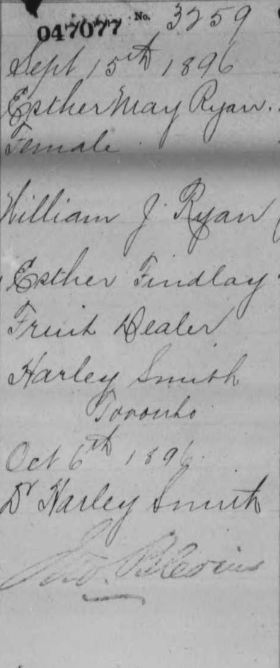 047077 No. 3259
Sept 15th 1896
Esther May Ryan
Female
William J. Ryan
Esther Findlay
Fruit Dealer
Harley Smith
Toronto
Oct 6th 1896
Dr Harley Smith
Jno. Blevins